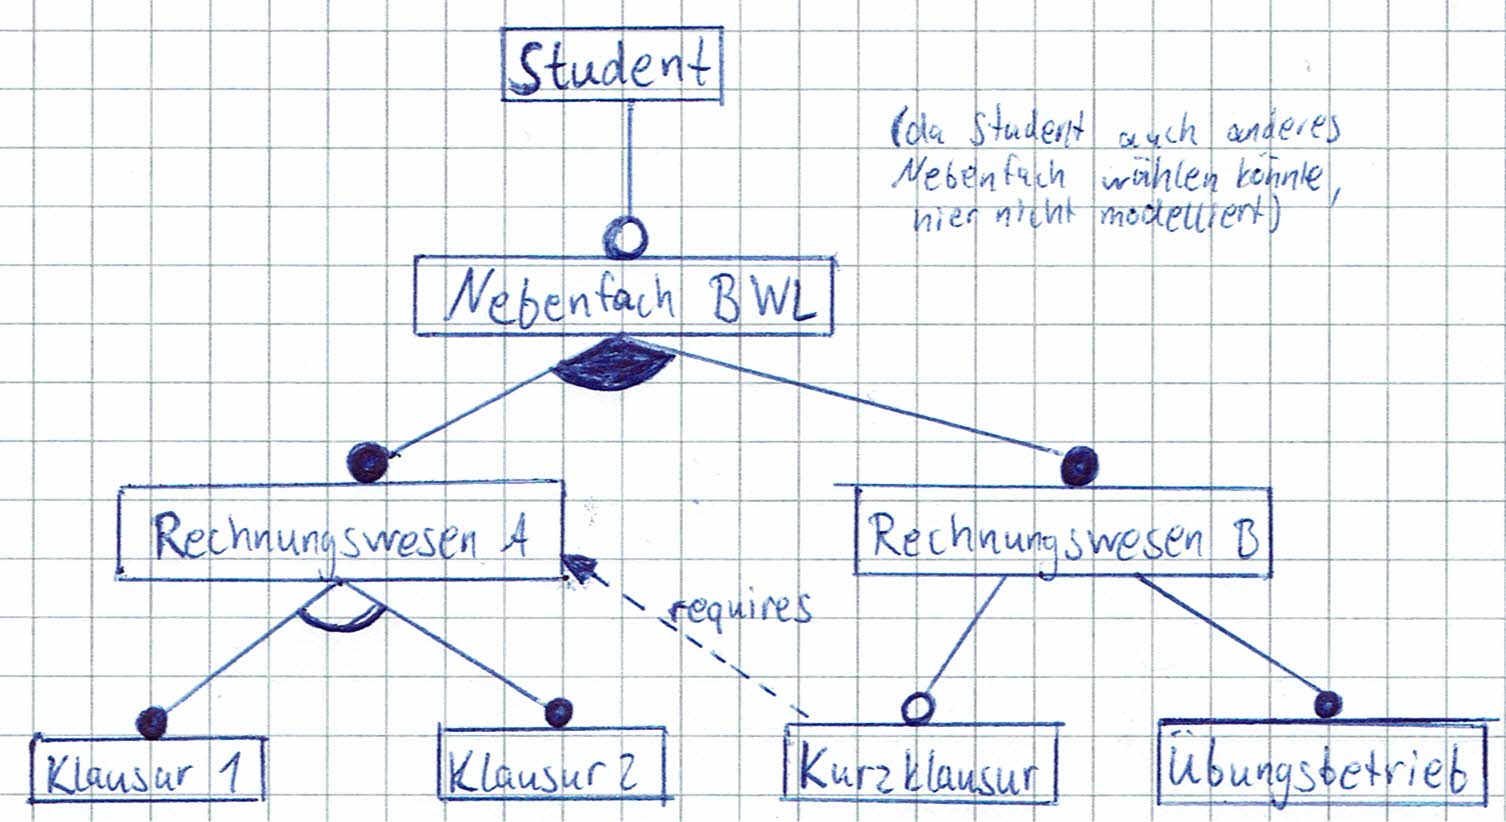 Student
(da Student auch anderes
Nebenfach wählen könnte,
hier nicht modelliert)
Nebenfach BWL
Rechnungswesen A
Rechnungswesen B
requires
Klausur 1
Klausur 2
Kurzklausur
Übungsbetrieb